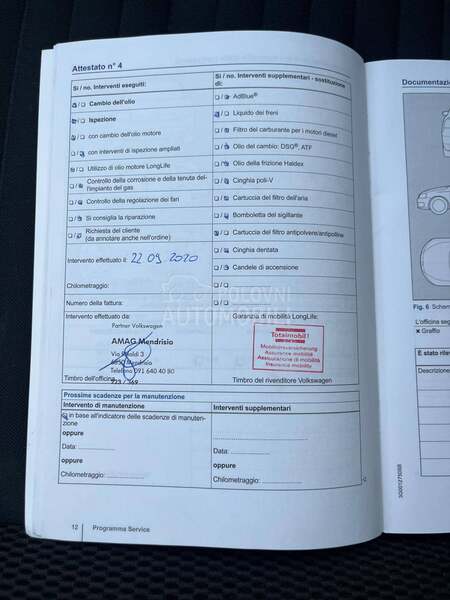 Attestato n° 4
Si / no. Interventi eseguiti:
Cambio dell'olio
Ispezione
con cambio dell'olio motore
con interventi di ispezione ampliati
Utilizzo di olio motore LongLife
Controllo della corrosione e della tenuta del-
l'impianto del gas
Controllo della regolazione dei fari
Si consiglia la riparazione
Richiesta del cliente
(da annotare anche nell'ordine)
Intervento effettuato il: 22 09. 2020
Chilometraggio:
Numero della fattura:
Intervento effettuato da:
Partner Volkswagen
AMAG Mendrisio
Via Rinaldi 3
6850 Mendrisio
Telefono 091 640 40 80
Timbro dell'officina
Si / no. Interventi supplementari - sostituzione
di:
AdBlue®
Liquido dei freni
Filtro del carburante per i motori diesel
Olio del cambio: DSG®, ATF
Olio della frizione Haldex
Cinghia poli-V
Cartuccia del filtro dell'aria
Bomboletta del sigillante
Cartuccia del filtro antipolvere/antipolline
Cinghia dentata
Candele di accensione
Garanzia di mobilità LongLife:
Totalmobil!
Mobilitätsversicherung
Assurance mobilité
Assicurazione di mobilità
Insurance mobility
Timbro del rivenditore Volkswagen
Prossime scadenze per la manutenzione
Intervento di manutenzione
in base all'indicatore delle scadenze di manuten-
zione
oppure
Data:
oppure
Chilometraggio:
Interventi supplementari
oppure
Data:
oppure
Chilometraggio:
12 Programma Service
POLOVNI
AUTOMOBILI
Documentazi
Fig. 6 Schem
L'officina seg
Graffio
È stato rilev
Descrizione